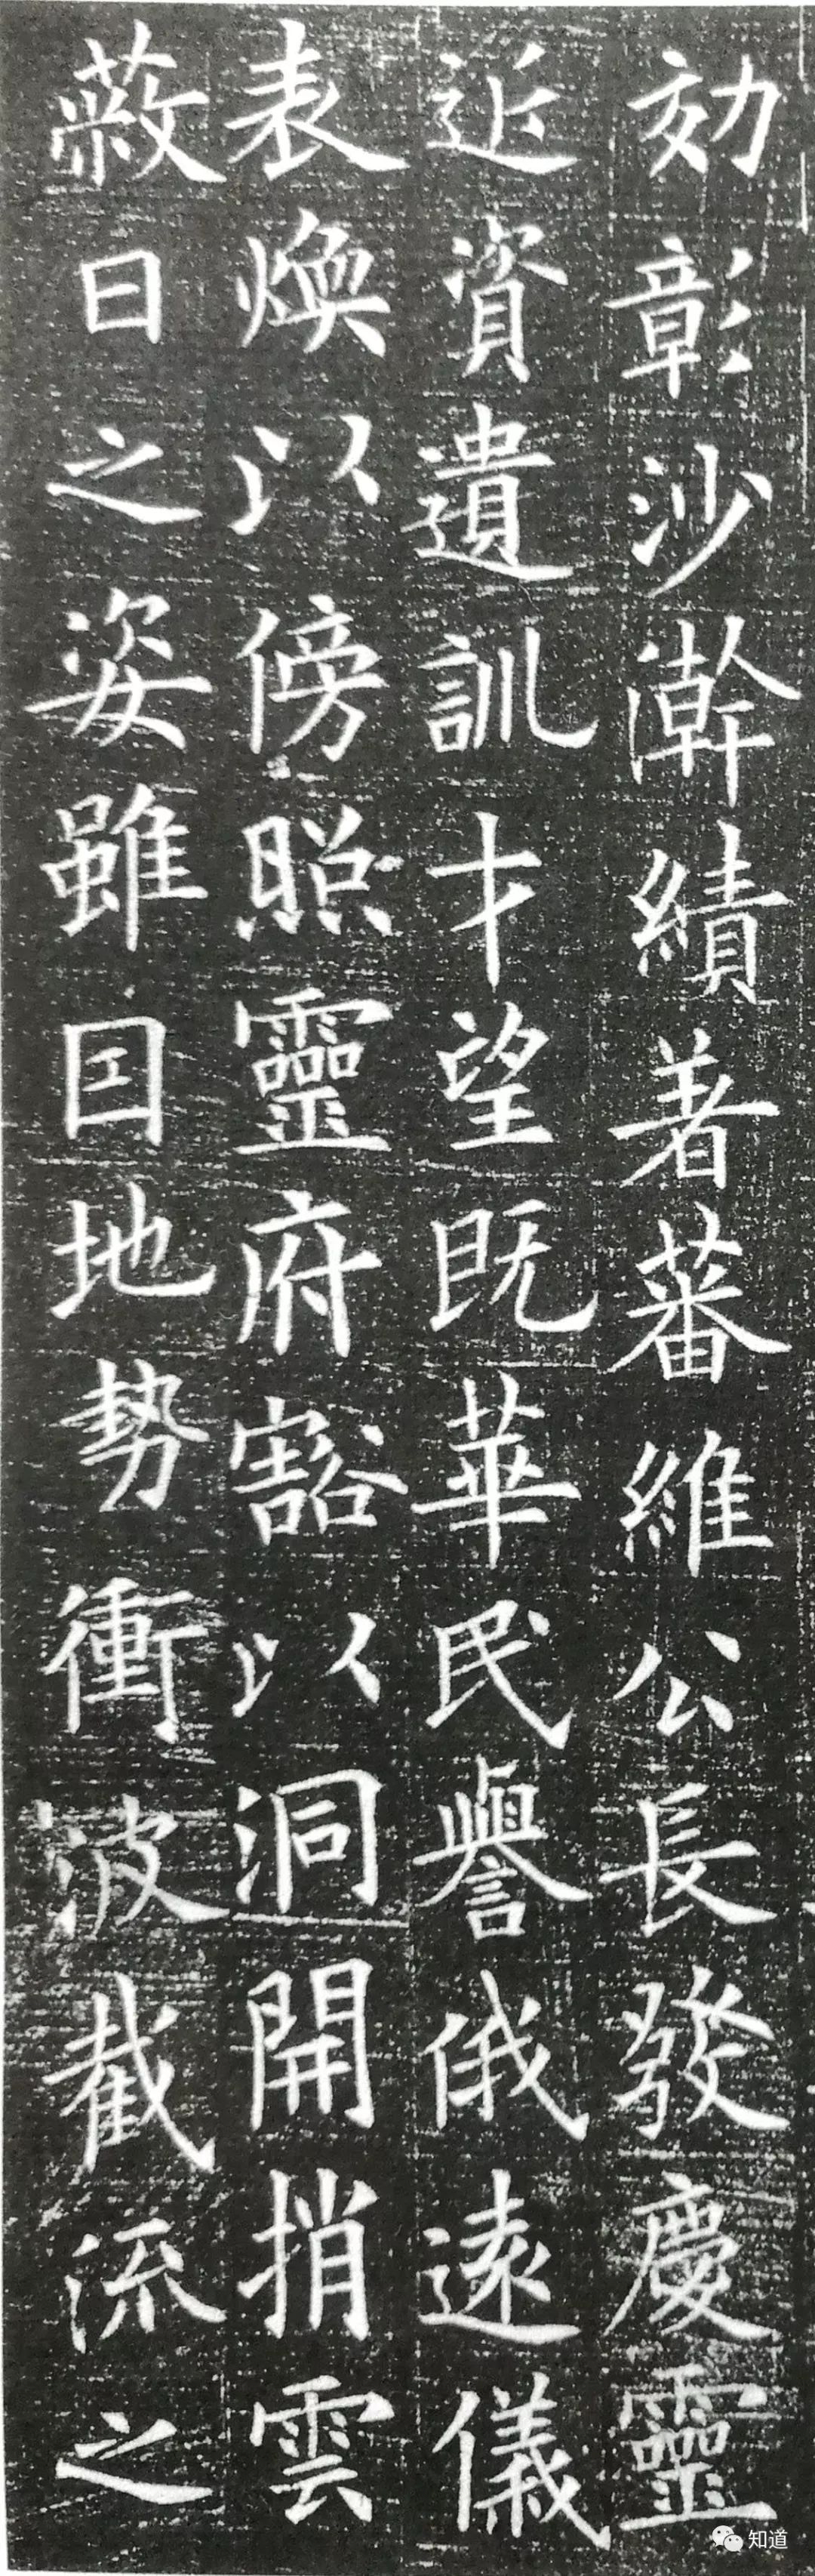 効彰沙澣績著蕃維公長發慶靈
近資遺訓才望旣華民譽俄遠儀
表煥以傍照靈府豁以洞開捎雲
蔽日之姿雖因地勢衝波截流之
知道